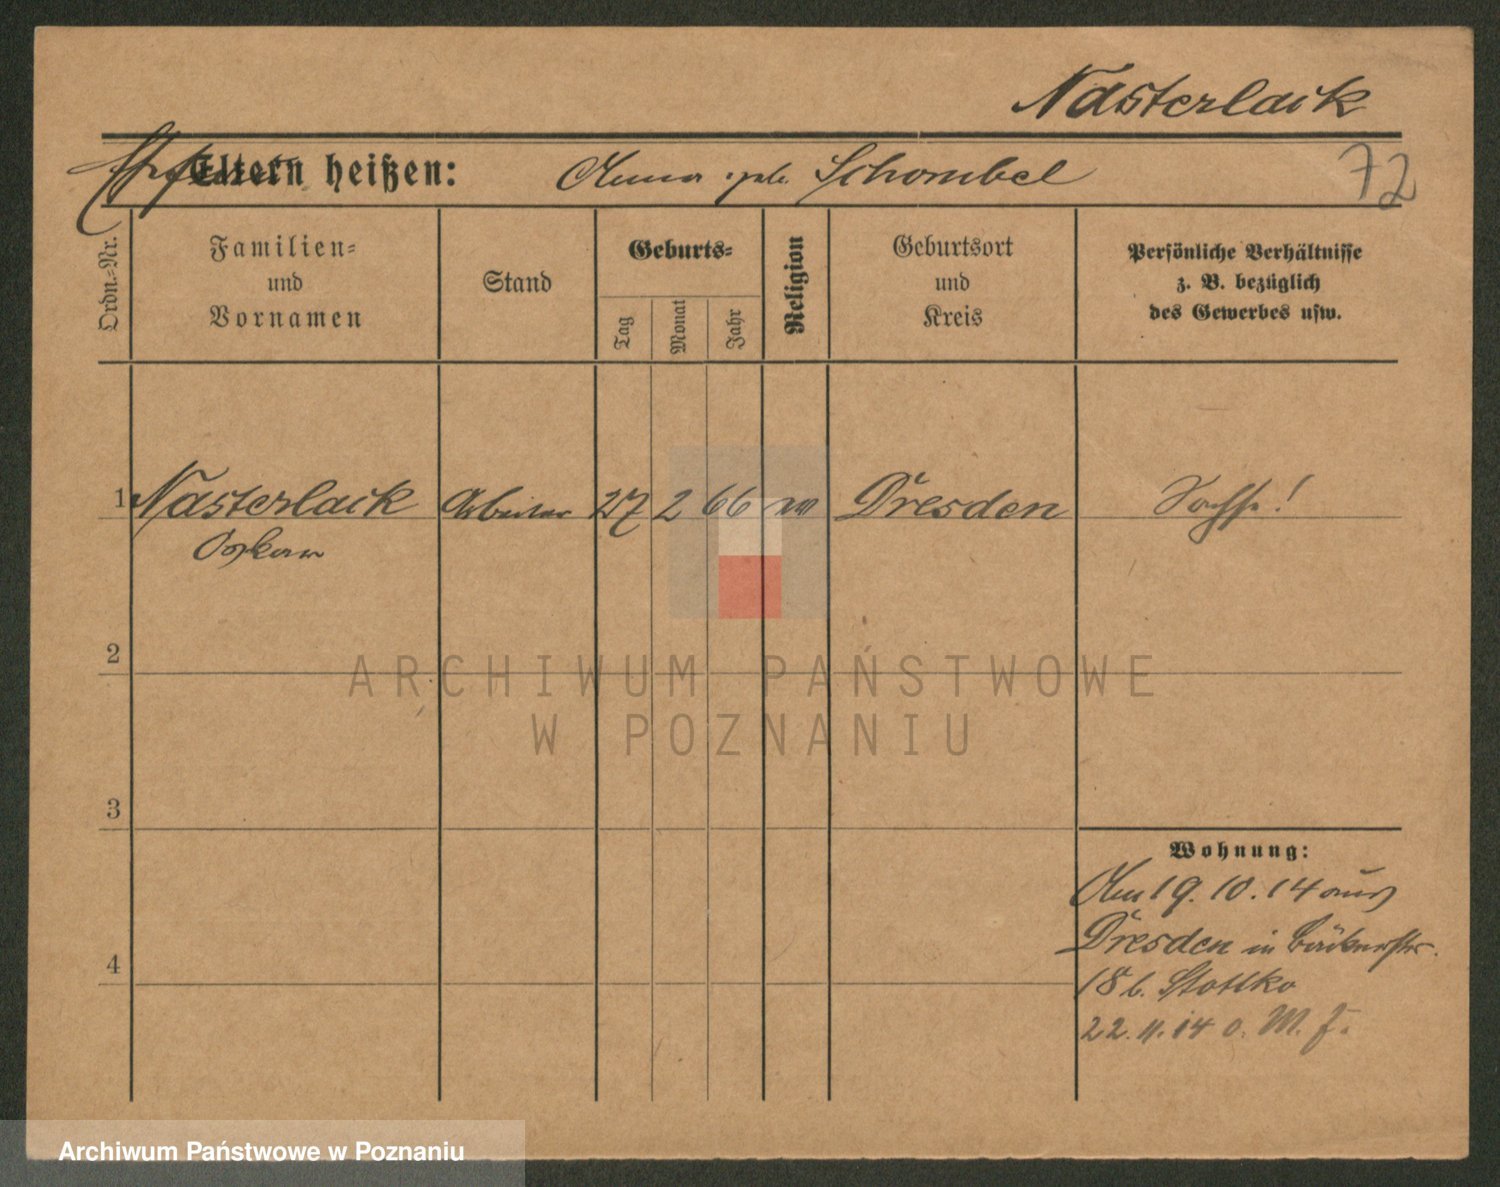 Nasterlack
Eltern heißen: Anna geb. Schombel
72
Ordn.-Nr.
Familien-
und
Vornamen
Stand
Geburts-
Tag
Monat
Jahr
Religion
Geburtsort
und
Kreis
Persönliche Verhältnisse
z. B. bezüglich
des Gewerbes usw.
1 Nasterlack Arbeiter 27 2 66 Dresden Sachse!
Oskar
2
3
4
Wohnung:
Am 19.10.14 aus
Dresden in Bäckerstr.
18 b. Stottko
22.11.14 o. M. F.
ARCHIWUM PAŃSTWOWE
W POZNANIU
Archiwum Państwowe w Poznaniu